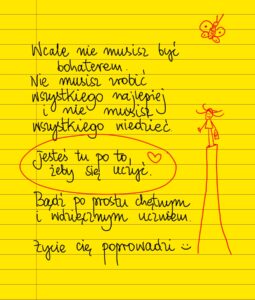 Wcale nie musisz być
bohaterem.
Nie musisz zrobić
wszystkiego najlepiej
i nie musisz
wszystkiego wiedzieć.
Jesteś tu po to,
żeby się uczyć.
Bądź po prostu chętnym
i wdzięcznym uczniem.
Życie cię poprowadzi